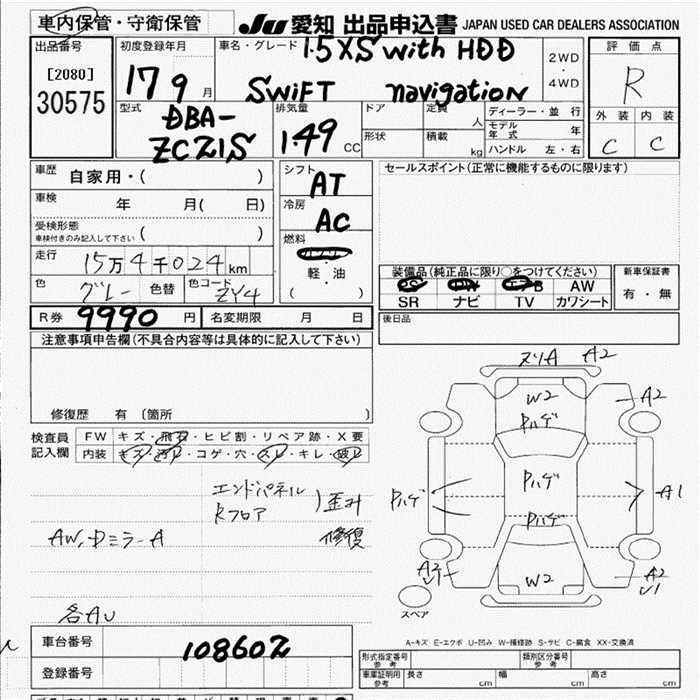 車内保管・守衛保管 JU 愛知 出品申込書 JAPAN USED CAR DEALERS ASSOCIATION
出品番号
[2080]
30575
初度登録年月
17 9 月
車名・グレード 1.5 XS with HDD
SWiFT navigation
2WD
・
4WD
評価点
R
外装 内装
C C
型式
DBA-
ZC21S
排気量
1.49 CC
ドア
形状
定員 人
積載 kg
ディーラー・並 行
モデル年式 年
ハンドル 左・右
車歴 自家用・( )
車検 年 月( 日)
受検形態
車検付きのみ記入して下さい ( )
走行 15万4千024km
色 グレー 色替 色コード ZY4
シフト
AT
冷房
AC
燃料
軽・油
( )
セールスポイント(正常に機能するものに限ります)
装備品(純正品に限り○をつけてください)
AW
SR ナビ TV カワシート
新車保証書
有・無
R券 9990 円 名変期限 月 日
後日品
注意事項申告欄(不具合内容等は具体的に記入して下さい)
修復歴 有 〔箇所 〕
検査員
記入欄
FW キズ・飛石・ヒビ割・リペア跡・X要
内装 キズ・汚レ・コゲ・穴・スレ・キレ・破レ
エンドパネル
Rフロア
歪み
修復
AW,Dミラ-A
各AU
ヌリA A2
W2
Pハゲ
A2
Pハゲ
Pハゲ
A1
Pハゲ
A2
W2
A2
スペア
A-キズ E-エクボ U-凹み W-補修跡 S-サビ C-腐食 XX-交換済
車台番号 108602
登録番号
形式指定番号
参考
類別区分番号
参考
車庫証明用
参考
長さ cm 幅 cm 高さ cm